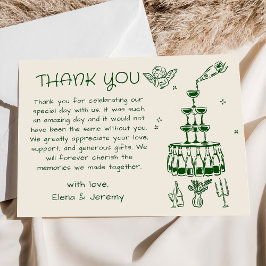 THANK YOU
Thank you for celebrating our
special day with us. It was such
an amazing day and it would not
have been the same without you.
We greatly appreciate your love,
support, and generous gifts. We
will forever cherish the
memories we made together.
with love,
Elena & Jeremy